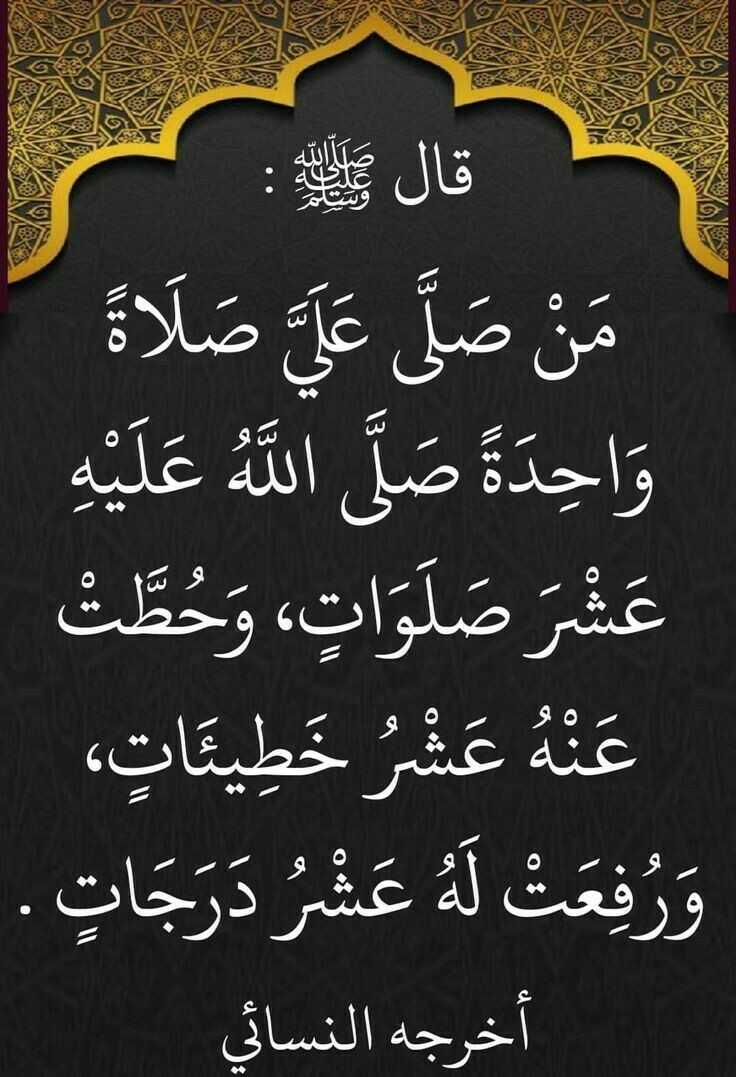 قال ﷺ :
مَنْ صَلَّى عَلَيَّ صَلَاةً
وَاحِدَةً صَلَّى اللَّهُ عَلَيْهِ
عَشْرَ صَلَوَاتٍ، وَحُطَّتْ
عَنْهُ عَشْرُ خَطِيئَاتٍ،
وَرُفِعَتْ لَهُ عَشْرُ دَرَجَاتٍ .
أخرجه النسائي